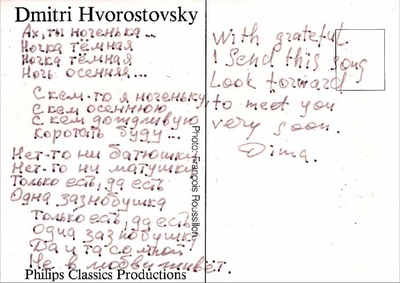 Dmitri Hvorostovsky
Ах, ты ноченька...
Ночка тёмная
Ночка тёмная
Ночь осенняя...
Скем-то я ноченьку,
Скем осеннюю,
С кем дождливую
Коротать буду...
Нет-то ни батюшки
Нет-то ни матушки
Только есть, да есть
Одна зазнобушка
Только есть, да есть
Одна зазнобушка
Да и та со мной
Не в любви живёт.
Philips Classics Productions
Photo: François Roussillon
With grateful
I Send this song
Look forward
to meet you
very soon.
Dima.